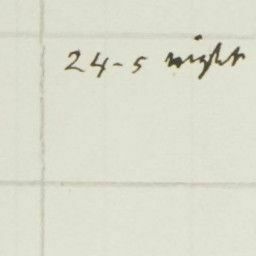 24-5 night